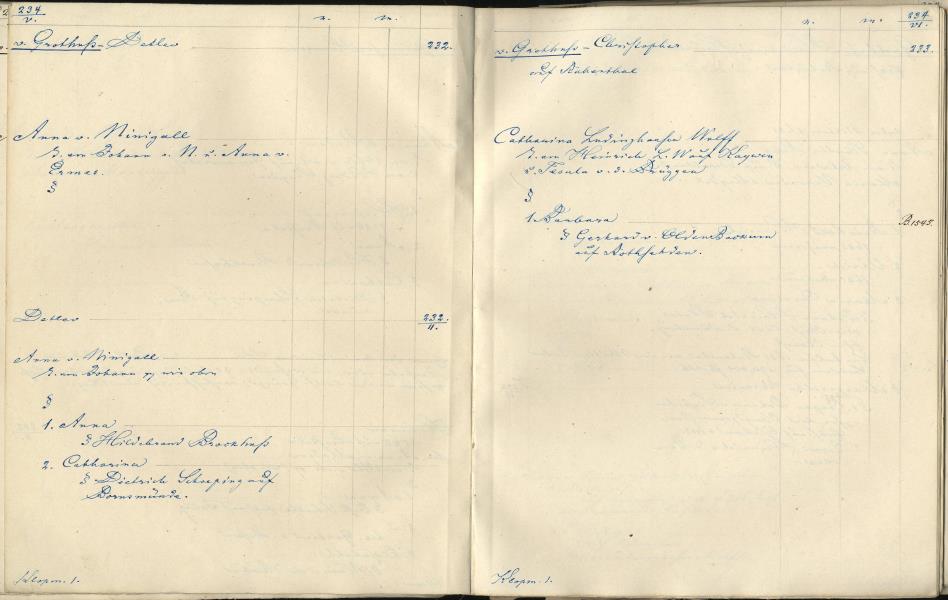 234
V.
n. m.
v. Grothuß - Detlev 232.
Anna v. Ninigall
T. von Johann v. N. u. Anna v.
Ermes.
§
Detlev 232
II.
Anna v. Ninigall
T. von Johann wie oben
§
1. Anna
§ Hildebrand Brockhuß
2. Catharina
§ Dietrich Schoeping auf
Bornsmünde.
Klopm. 1.
n. m. 234
VI.
v. Grothuß - Christopher 233.
auf Ruhenthal
Catharina Ludinghausen Wolff
T. von Heinrich L. W. auf Kaywen
u. v. d. Brüggen
§
1. Barbara B. 1545.
§ Gerhard v. Olden Bockum
auf
Klopm. 1.